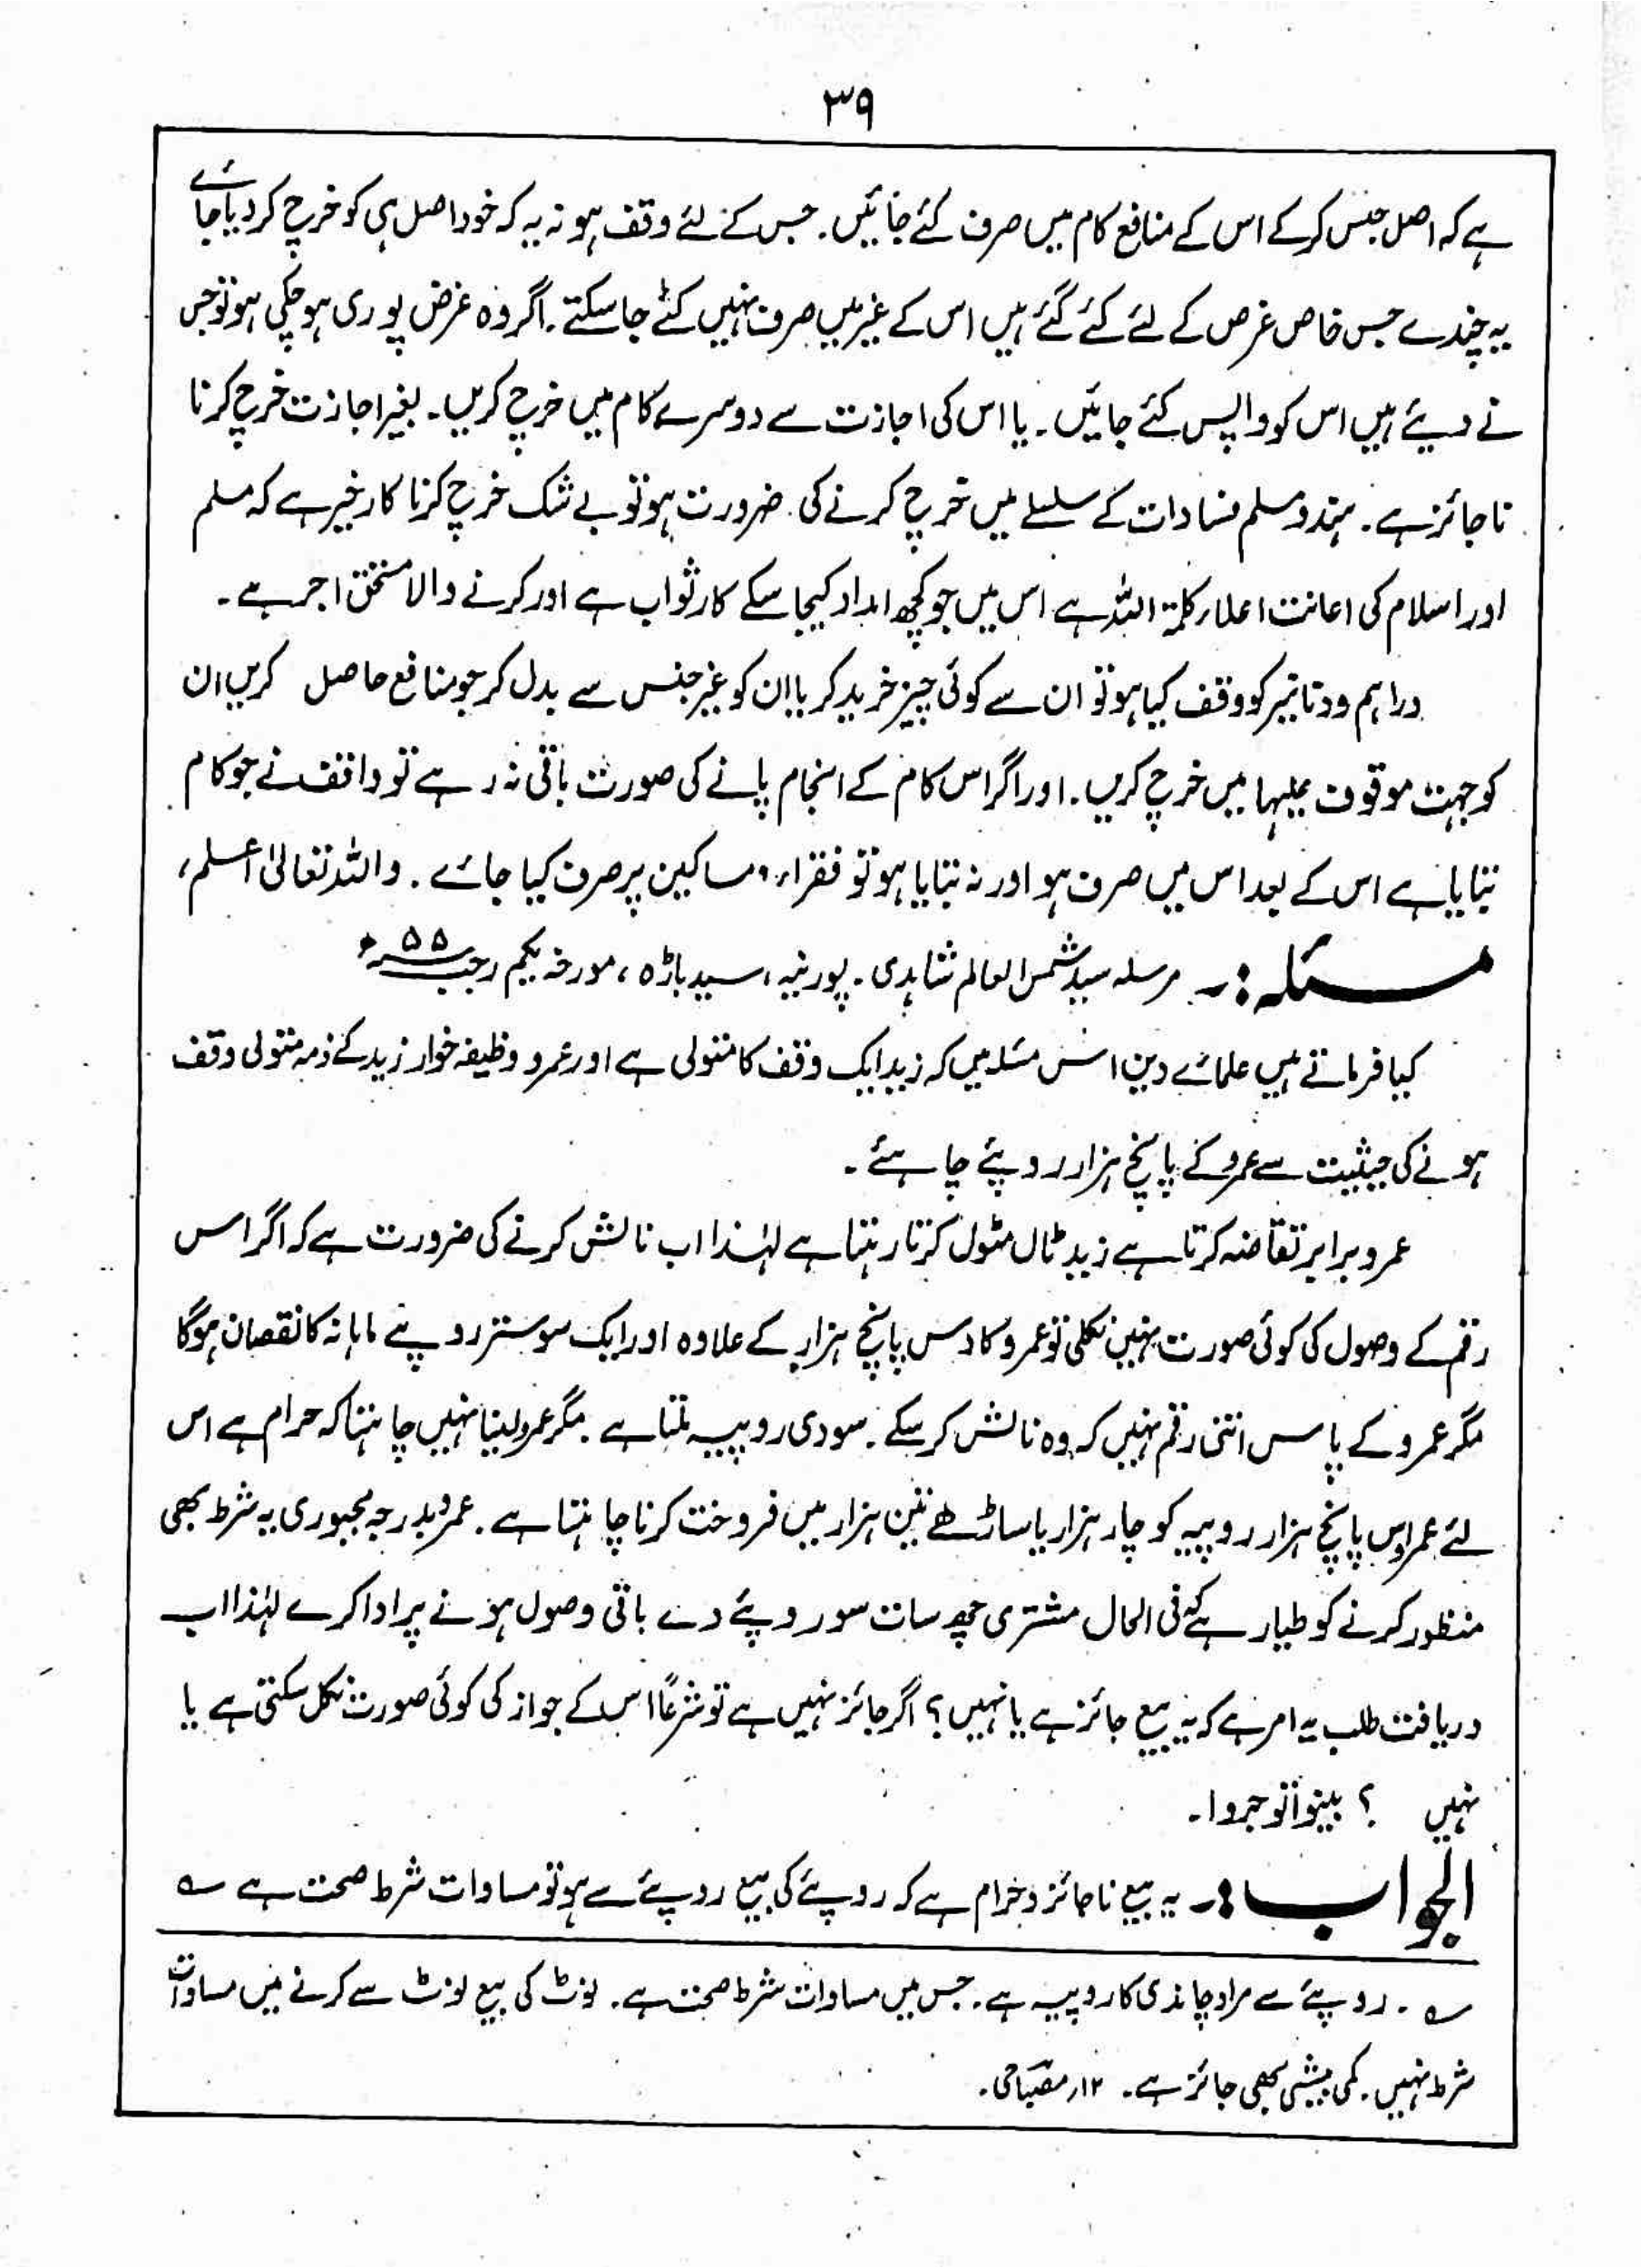 ۳۹
ہے کہ اصل حبس کرکے اس کے منافع کام میں صرف کئے جائیں۔ جس کے لئے وقف ہو نہ یہ کہ خود اصل ہی کو خرچ کردیا جائے
یہ چندے جس خاص غرض کے لئے کئے گئے ہیں اس کے غیر میں صرف نہیں کئے جاسکتے۔ اگر وہ غرض پوری ہوچکی ہو تو جس
نے دیئے ہیں اس کو واپس کئے جائیں۔ یا اس کی اجازت سے دوسرے کام میں خرچ کریں۔ بغیر اجازت خرچ کرنا
ناجائز ہے۔ ہندو مسلم فسادات کے سلسلے میں خرچ کرنے کی ضرورت ہو تو بے شک خرچ کرنا کار خیر ہے کہ مسلم
اور اسلام کی اعانت اعلاء کلمۃ اللہ ہے اس میں جو کچھ امداد کیجا سکے کار ثواب ہے اور کرنے والا مستحق اجر ہے۔
دراہم ودنانیر کو وقف کیا ہو تو ان سے کوئی چیز خرید کر یا ان کو غیر جنس سے بدل کر جو منافع حاصل کریں ان
کو جہت موقوف علیہا میں خرچ کریں۔ اور اگر اس کام کے انجام پانے کی صورت باقی نہ رہے تو واقف نے جو کام
بتایا ہے اس کے بعد اس میں صرف ہو اور نہ بتایا ہو تو فقراء و مساکین پر صرف کیا جائے۔ واللہ تعالیٰ اعلم،
مسئلہ:۔ مرسلہ سید شمس العالم شاہدی۔ پورنیہ، سید باڑہ، مورخہ یکم رجب ۵۵ھ
کیا فرماتے ہیں علمائے دین اس مسئلہ میں کہ زید ایک وقف کا متولی ہے اور عمرو وظیفہ خوار زید کے ذمہ متولی وقف
ہونے کی حیثیت سے عمرو کے پانچ ہزار روپئے چاہئے۔
عمرو برابر تقاضہ کرتا ہے زید ٹال مٹول کرتا رہتا ہے لہٰذا اب نالش کرنے کی ضرورت ہے کہ اگر اس
رقم کے وصول کی کوئی صورت نہیں نکلی تو عمرو کا دس پانچ ہزار کے علاوہ اور ایک سو ستر روپئے ماہانہ کا نقصان ہوگا
مگر عمرو کے پاس اتنی رقم نہیں کہ وہ نالش کرسکے۔ سودی روپیہ ملتا ہے۔ مگر عمرو لینا نہیں چاہتا کہ حرام ہے اس
لئے عمرو اس پانچ ہزار روپیہ کو چار ہزار یا ساڑھے تین ہزار میں فروخت کرنا چاہتا ہے۔ عمرو بدرجہ مجبوری یہ شرط بھی
منظور کرنے کو طیار ہے کہ فی الحال مشتری چھ سات سو روپئے دے باقی وصول ہونے پر ادا کرے لہٰذا اب
دریافت طلب یہ امر ہے کہ یہ بیع جائز ہے یا نہیں؟ اگر جائز نہیں ہے تو شرعاً اس کے جواز کی کوئی صورت نکل سکتی ہے یا
نہیں ؟ بینوا توجروا۔
الجواب:۔ یہ بیع ناجائز و حرام ہے کہ روپئے کی بیع روپئے سے ہو تو مساوات شرط صحت ہے ؎
؎۔ روپئے سے مراد چاندی کا روپیہ ہے۔ جس میں مساوات شرط صحت ہے۔ نوٹ کی بیع نوٹ سے کرنے میں مساوات
شرط نہیں۔ کمی بیشی بھی جائز ہے۔ ۱۲؍ مصباحی۔